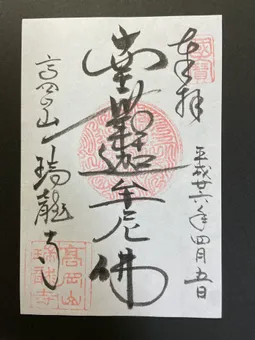 奉拝
國寶
平成廿六年四月五日
南無釋迦牟尼佛
高岡山
瑞龍寺
高岡山
瑞龍寺